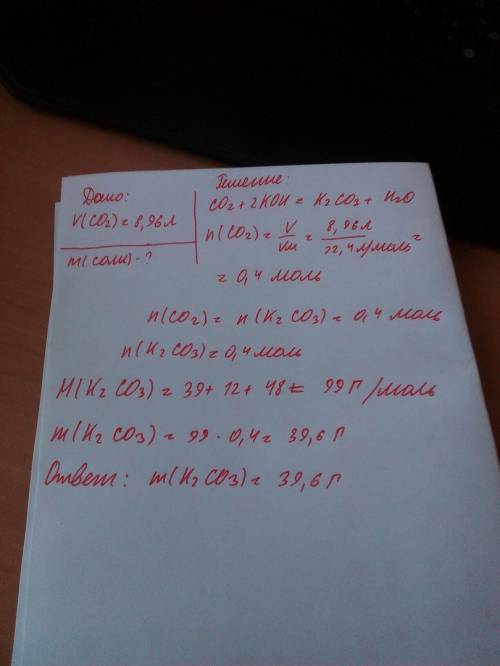 Дано:
V(CO2)=8,96л
m(соли)-?
Решение:
CO2+2KOH=K2CO3+H2O
n(CO2)=V/Vm=8,96л/22,4л/моль=
=0,4 моль
n(CO2)=n(K2CO3)=0,4 моль
n(K2CO3)=0,4моль
M(K2CO3)=39+12+48=99г/моль
m(K2CO3)=99·0,4=39,6г
Ответ: m(K2CO3)=39,6г